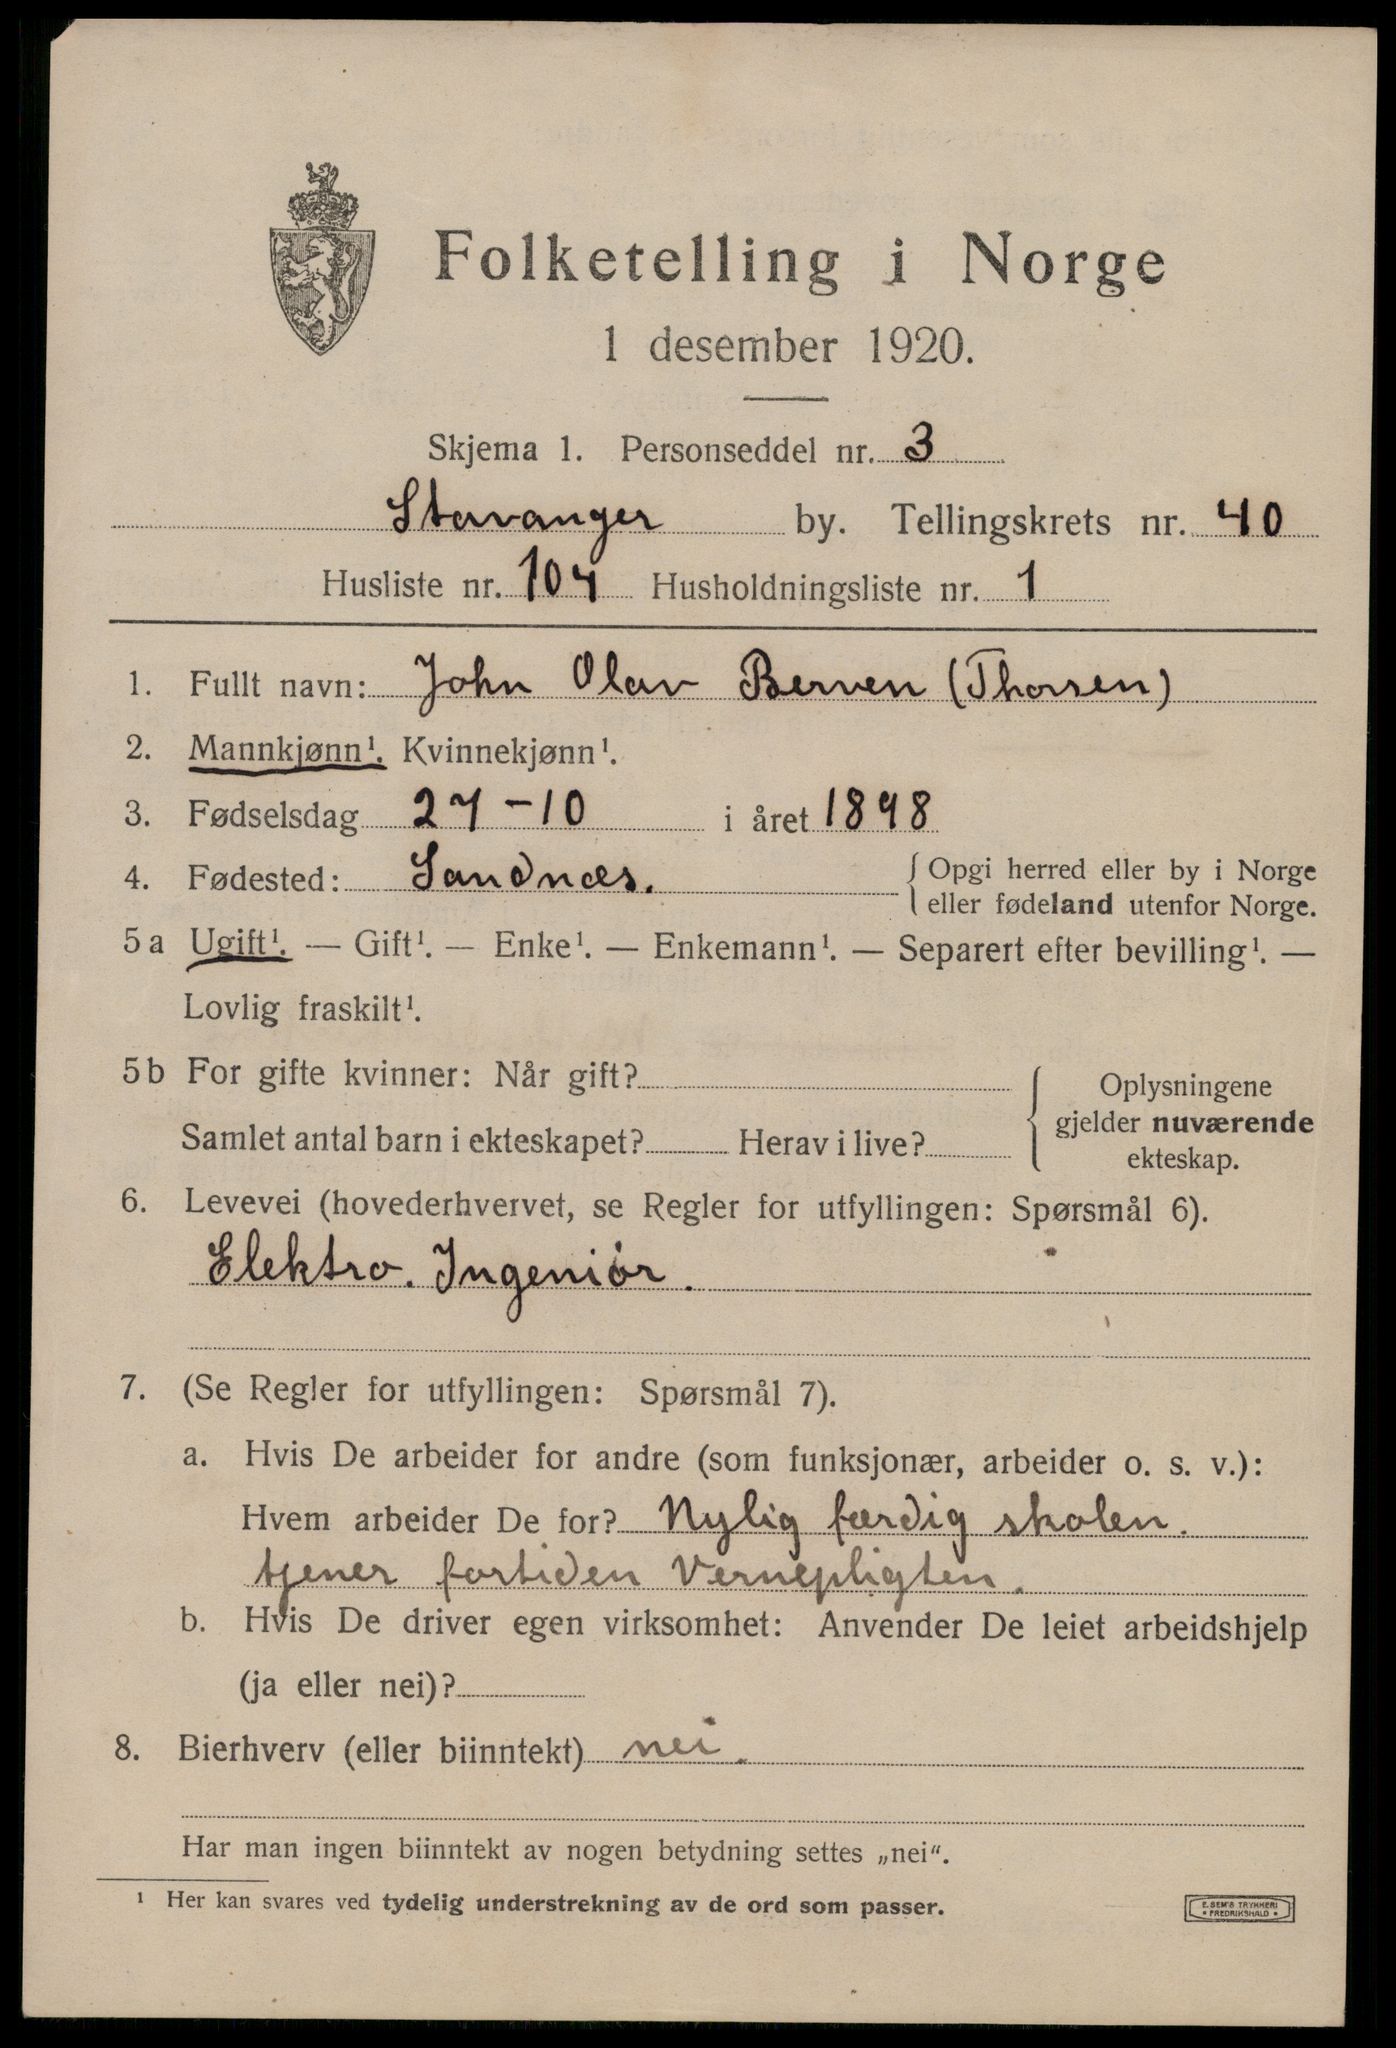 Folketelling i Norge
1 desember 1920.
Skjema 1. Personseddel nr. 3
Stavanger by. Tellingskrets nr. 40
Husliste nr. 104 Husholdningsliste nr. 1
1. Fullt navn: John Olav Berven (Thorsen)
2. Mannkjønn¹. Kvinnekjønn¹.
3. Fødselsdag 27-10 i året 1898
4. Fødested: Sandnæs. { Opgi herred eller by i Norge
eller fødeland utenfor Norge.
5a Ugift¹. — Gift¹. — Enke¹. — Enkemann¹. — Separert efter bevilling¹. —
Lovlig fraskilt¹.
5b For gifte kvinner: Når gift? { Oplysningene
gjelder nuværende
Samlet antal barn i ekteskapet? Herav i live?
ekteskap.
6. Levevei (hovederhvervet, se Regler for utfyllingen: Spørsmål 6).
Elektro. Ingeniör.
7. (Se Regler for utfyllingen: Spørsmål 7).
a. Hvis De arbeider for andre (som funksjonær, arbeider o. s. v.):
Hvem arbeider De for? Nylig færdig skolen.
tjener fortiden Vernepligten.
b. Hvis De driver egen virksomhet: Anvender De leiet arbeidshjelp
(ja eller nei)?
8. Bierhverv (eller biinntekt) nei.
Har man ingen biinntekt av nogen betydning settes „nei“.
¹ Her kan svares ved tydelig understrekning av de ord som passer.
E. SEM'S TRYKKERI
• FREDRIKSHALD •